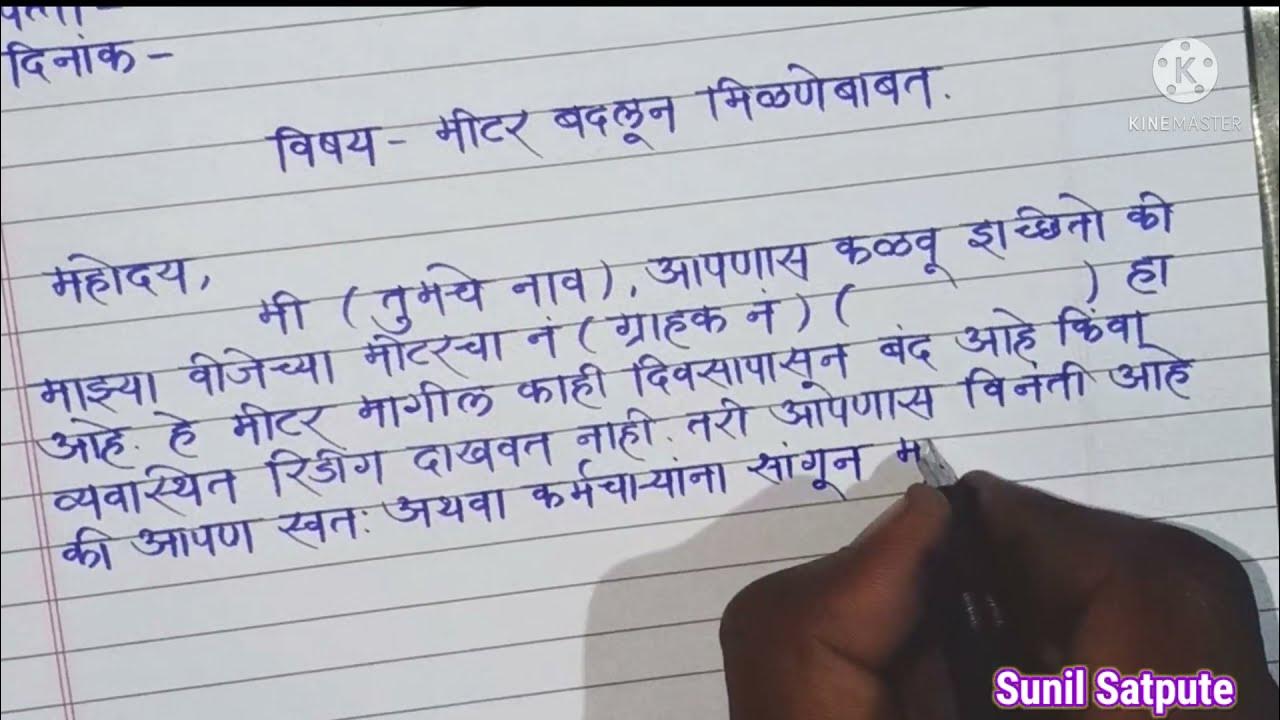 दिनांक -
विषय - मीटर बदलून मिळणेबाबत.
महोदय,
मी (तुमचे नाव), आपणास कळवू इच्छितो की
माझ्या वीजेच्या मीटरचा नं (ग्राहक नं) ( ) हा
आहे. हे मीटर मागील काही दिवसापासून बंद आहे किंवा
व्यवास्थित रिडींग दाखवत नाही. तरी आपणास विनंती आहे
की आपण स्वतः अथवा कर्मचाऱ्यांना सांगून म
K
KINEMASTER
Sunil Satpute